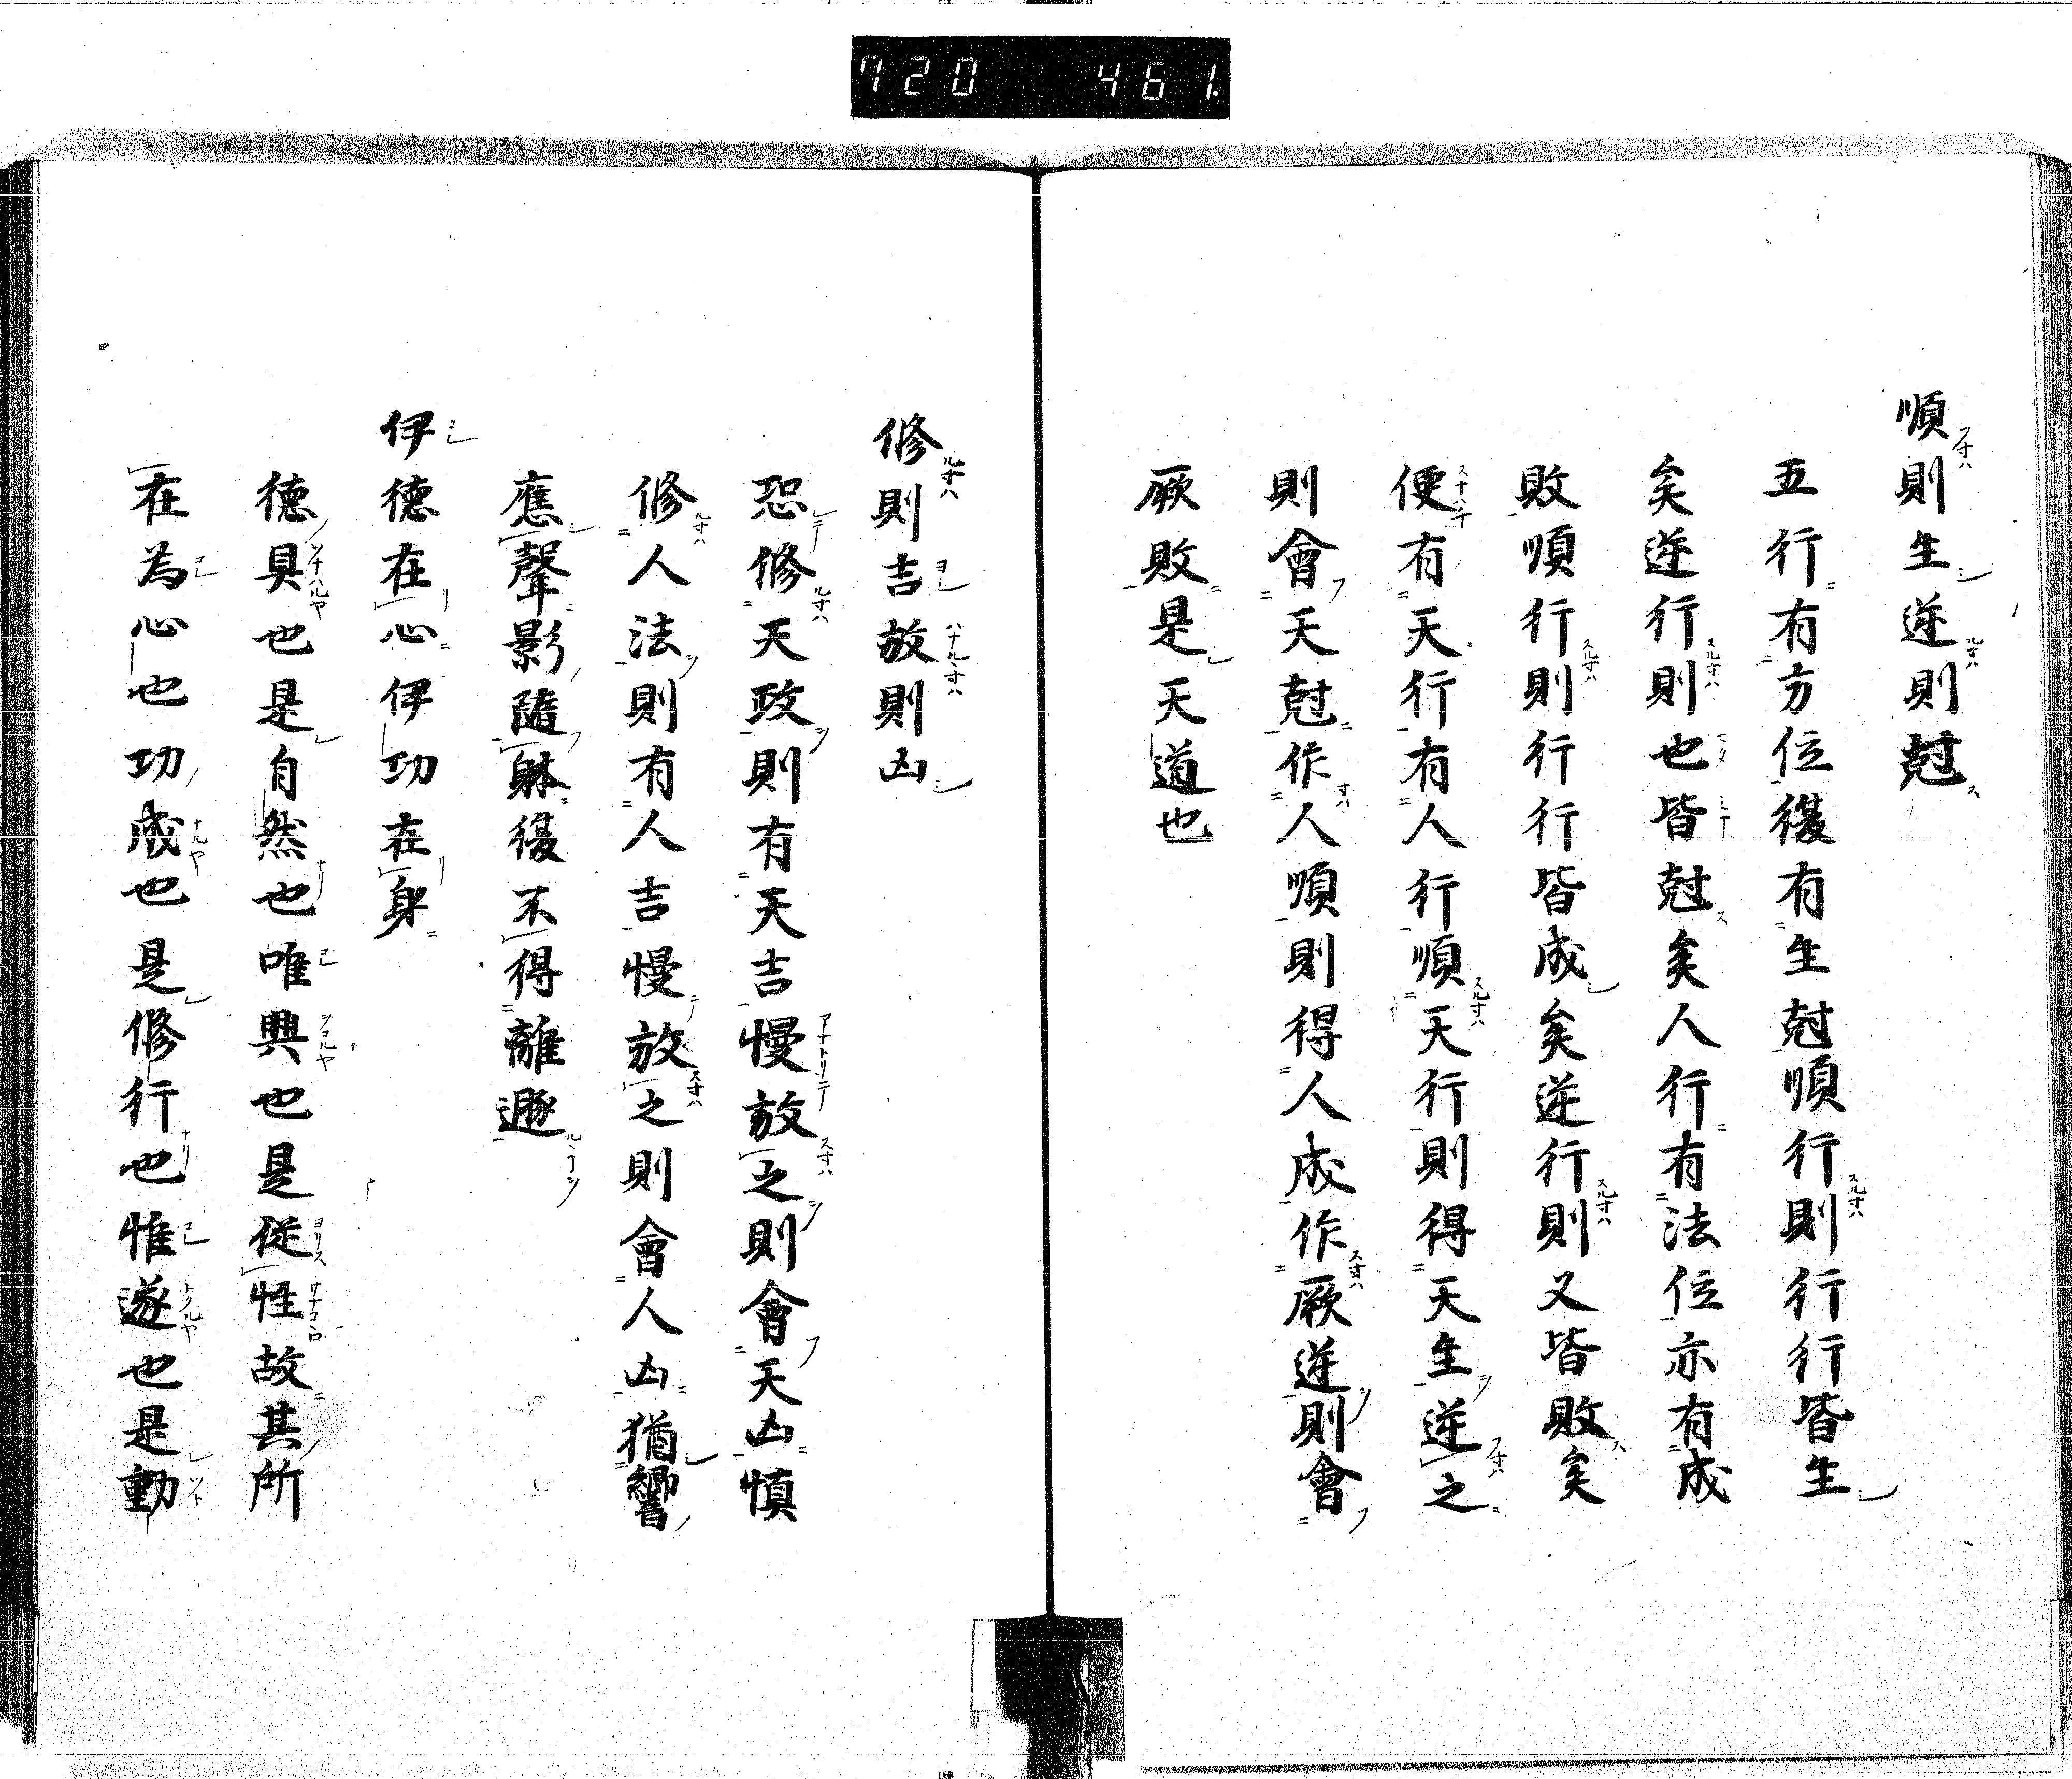 720 461.
順則生逆則尅
五行有方位復有生尅順行則行行皆生
矣逆行則也皆尅矣人行有法位亦有成
敗順行則行行皆成矣逆行則又皆敗矣
便有天行有人行順天行則得天生逆之
則會天尅作人順則得人成作厥逆則會
厥敗是天道也
修則吉放則凶
恐修天政則有天吉慢放之則會天凶慎
修人法則有人吉慢放之則會人凶猶響
應聲影隨躰復不得離遯
伊德在心伊功在身
德具也是自然也唯興也是從性故其所
在為心也功成也是修行也惟遂也是動